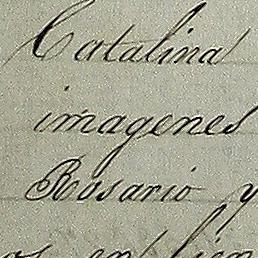 Catalina
imagenes
Rosario y